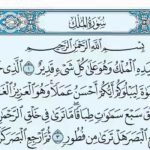 سُورَةُ الْمُلْكِ
بِسْمِ اللَّهِ الرَّحْمَٰنِ الرَّحِيمِ
يَدِهِ الْمُلْكُ وَهُوَ عَلَىٰ كُلِّ شَيْءٍ قَدِيرٌ ١ الَّذِي
لِيَبْلُوَكُمْ أَيُّكُمْ أَحْسَنُ عَمَلًا وَهُوَ الْعَزِيزُ
سَبْعَ سَمَٰوَٰتٍ طِبَاقًا مَا تَرَىٰ فِي خَلْقِ الرَّحْمَٰنِ
الْبَصَرَ هَلْ تَرَىٰ مِن فُطُورٍ ٣ ثُمَّ ارْجِعِ الْبَصَرَ